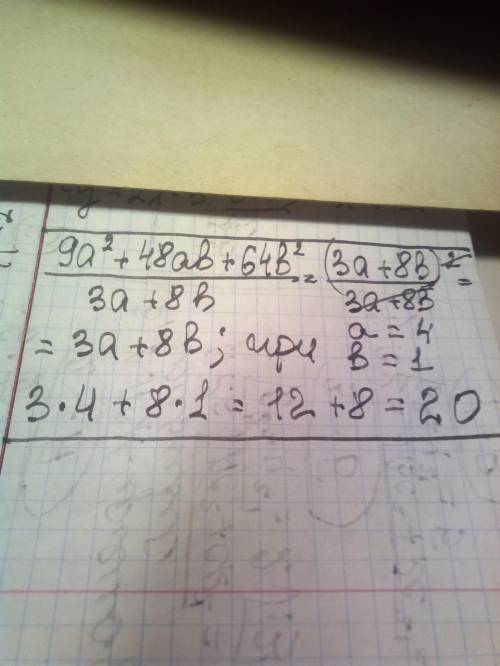 9a² + 48ab + 64b² / 3a + 8b = (3a + 8b)² / 3a + 8b =
= 3a + 8b; при a = 4 b = 1
3 · 4 + 8 · 1 = 12 + 8 = 20